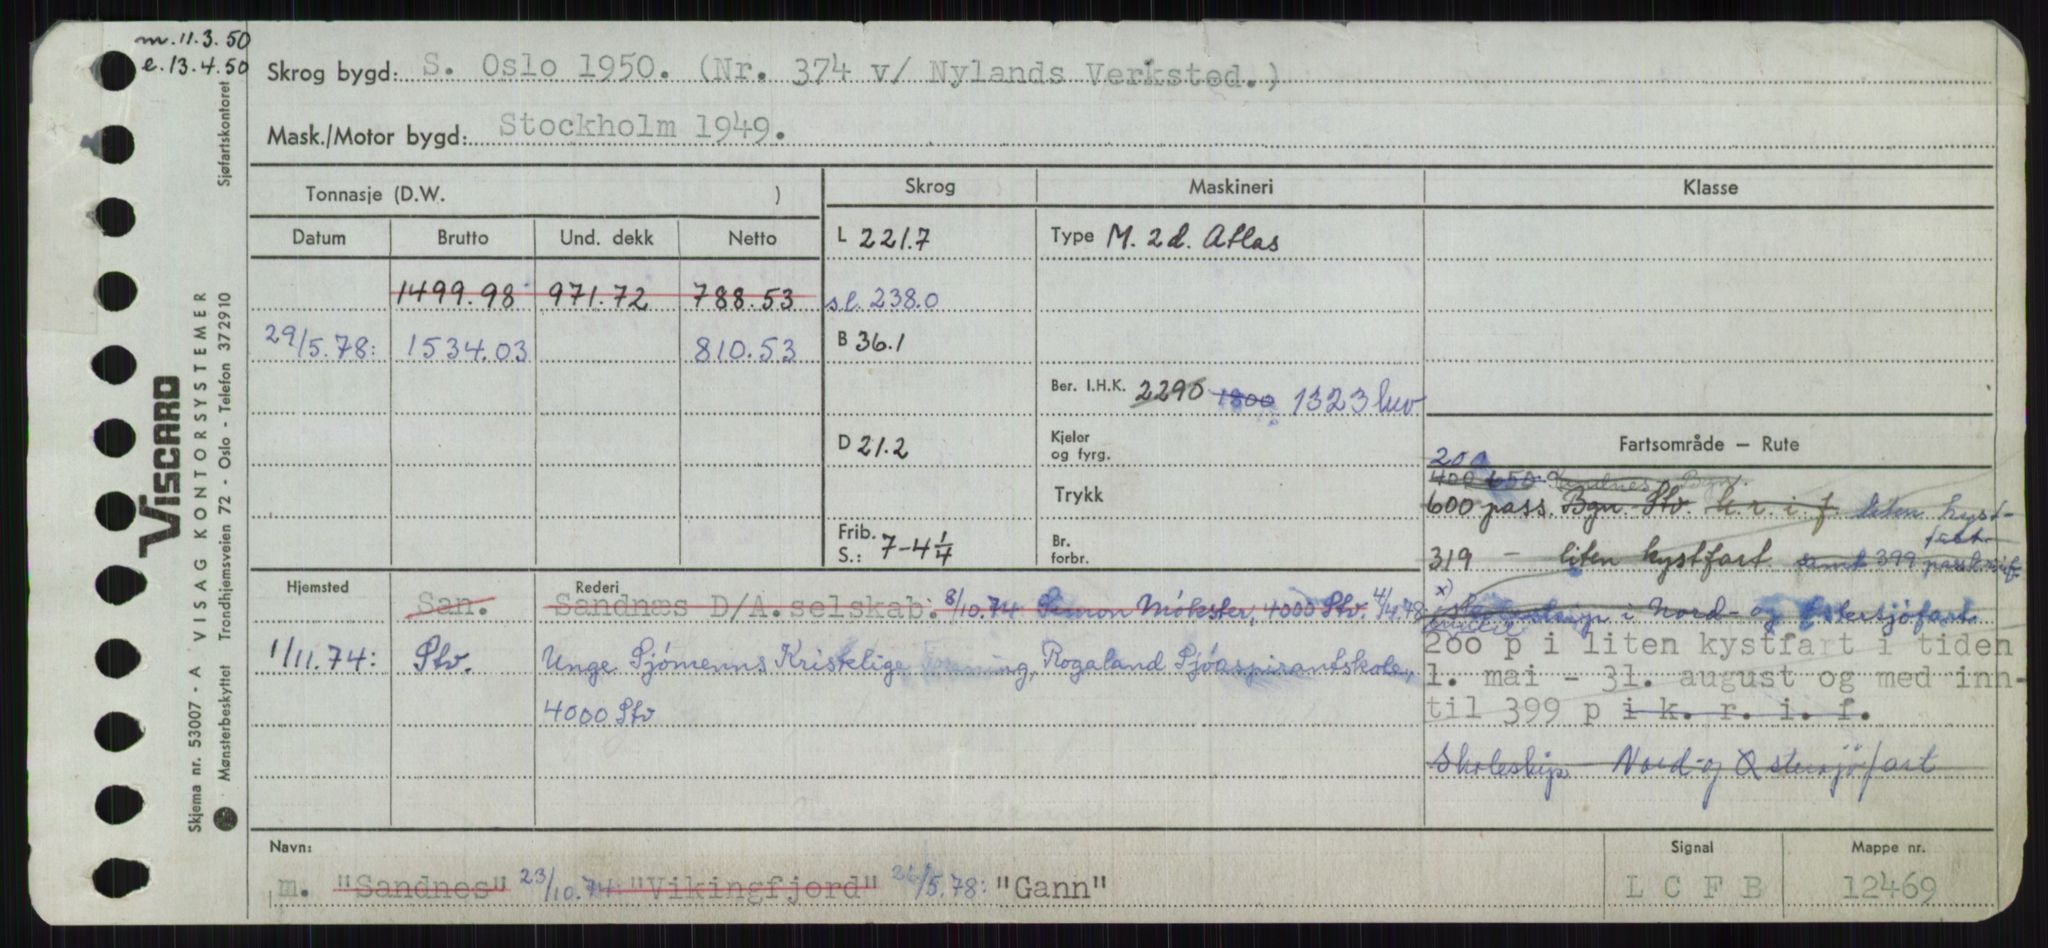 m. 11.3.50
e. 13.4.50
Skrog bygd: S. Oslo 1950. (Nr. 374 v/ Nylands Verksted.)
Mask./Motor bygd: Stockholm 1949.
Tonnasje (D.W. )
Skrog
Maskineri
Klasse
Datum
Brutto
Und. dekk
Netto
L 221.7
Type M. 2d. Atlas
1499.98 971.72 788.53
sl. 238.0
29/5.78: 1534.03 810.53
B 36.1
Ber. I.H.K. 2290 1800 1323 kw
D 21.2
Kjeler og fyrg.
Trykk
Frib. S.: 7-4 1/4
Br. forbr.
Fartsområde — Rute
200
400 650 Sandnes Bgn.
600 pass. Bgn - Stv. k.r.i.f. liten kyst-
fart
319 — liten kystfart samt 399 pass
x) i Nord- og Østersjöfart
200 p i liten kystfart i tiden
1. mai - 31. august og med inn-
til 399 p i k. r. i. f.
Skoleskip - Nord- og Østersjöfart
Hjemsted
Rederi
San. Sandnæs D/A. selskab. 8/10.74 Simon Mökster, 4000 Stv. 4/4.78
1/11.74: Stv. Unge Sjömenns Kristelige Forening, Rogaland Sjöaspirantskole,
4000 Stv
Navn:
Signal
Mappe nr.
m. "Sandnes" 23/10.74: "Vikingfjord" 26/5.78: "Gann"
L C F B
12469
Viscard
VISAG KONTORSYSTEMER
Skjema nr. 53007 - A
Sjøfartskontoret
Mønsterbeskyttet Trondhjemsveien 72 - Oslo - Telefon 372910